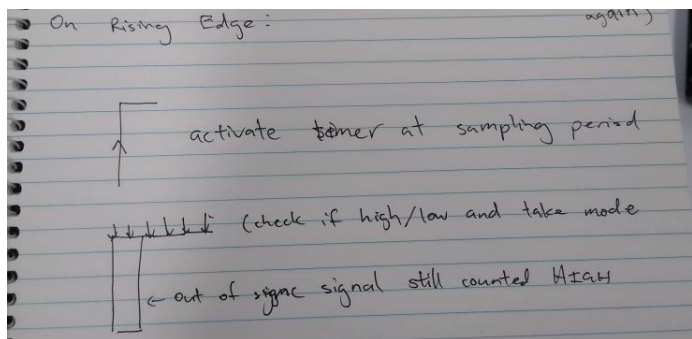 On Rising Edge:
again)
activate timer at sampling period
(check if high/low and take mode
← out of signal still counted HIGH